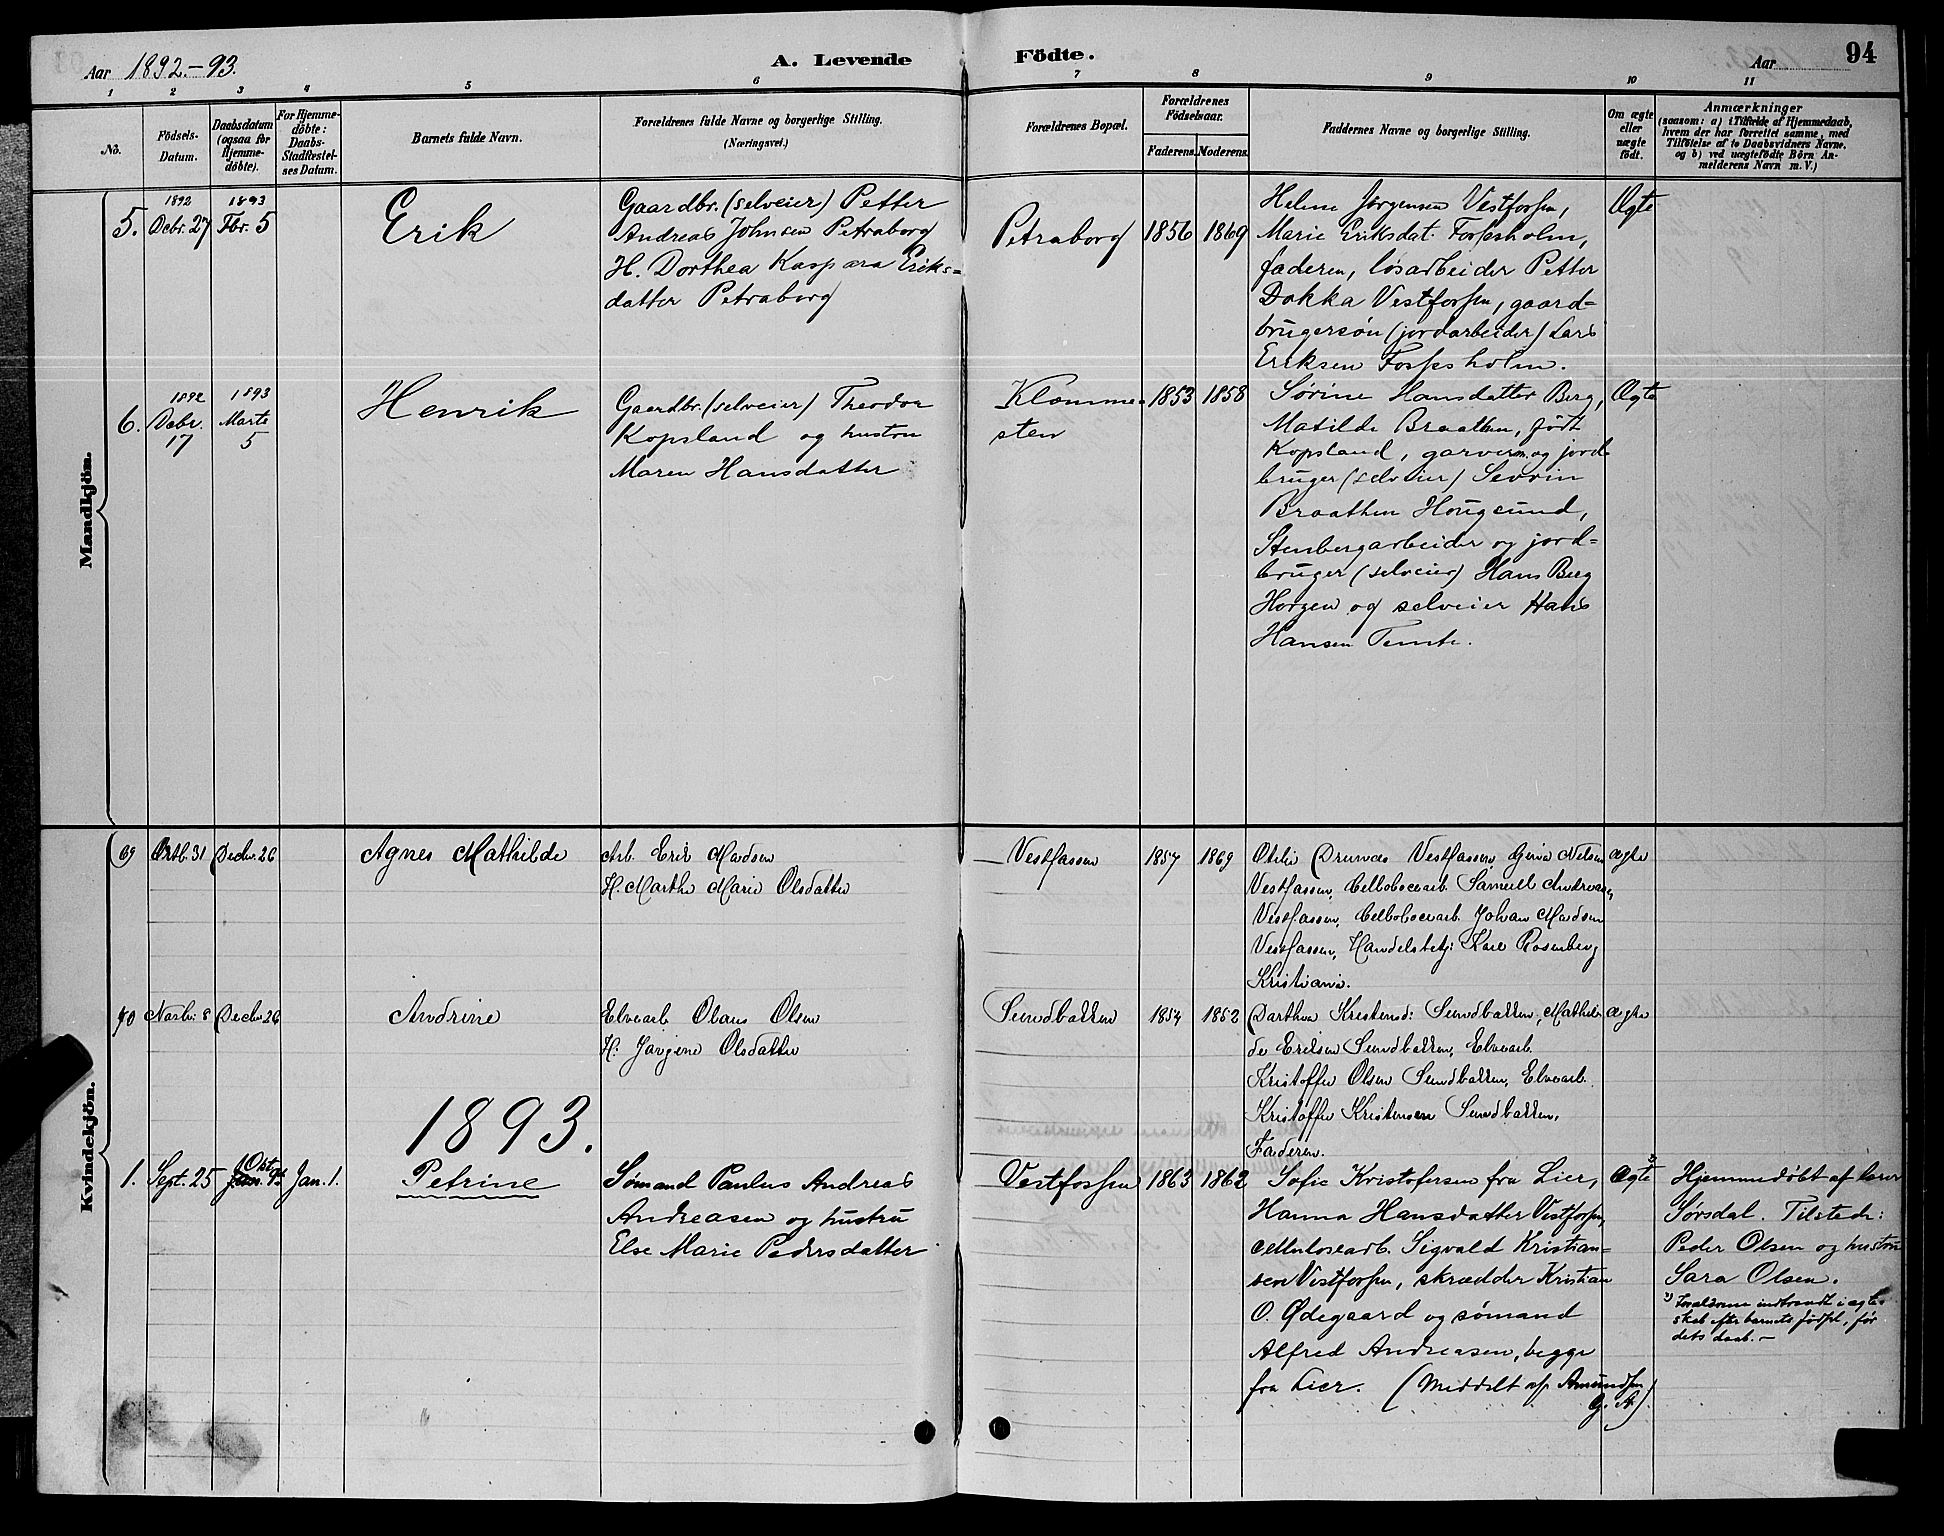 Aar 1892.-93.
A. Levende Födte.
Aar
94
1 2 3 4 5 6 7 8 9 10 11
No.
Födsels-Datum.
Daabsdatum (ogsaa for Hjemme-döbte).
For Hjemme-döbte: Daabs-Stadfæstel-ses Datum.
Barnets fulde Navn.
Forældrenes fulde Navne og borgerlige Stilling.
(Næringsvei.)
Forældrenes Bopæl.
Forældrenes Födselsaar.
Faderens. Moderens.
Faddernes Navne og borgerlige Stilling.
Om ægte eller uægte födt.
Anmærkninger
(saasom: a) i Tilfælde af Hjemmedaab,
hvem der har forrettet samme, med
Tilföielse af to Daabsvidners Navne.
og b) ved uægtefödte Börn An-
melderens Navn m. V.)
Mandkjön.
5.
1892
Debr. 27
1893
Fbr. 5
Erik
Gaardbr. (selveier) Petter
Andreas Johnsen Petraborg
H. Dorthea Kaspara Eriks=
datter Petraborg
Petraborg
1856
1869
Helene Jørgensen Vestfossen,
Marie Eriksdat. Fossesholm,
faderen, løsarbeider Petter
Dokka Vestfossen, gaard=
brugersøn (jordarbeider) Lars
Eriksen Fossesholm.
Ægte
6.
1892
Debr.
17
1893
Marts
5
Henrik
Gaardbr. (selveier) Theodor
Kopsland og hustru
Maren Hansdatter
Klomme=
sten
1853
1858
Sørine Hansdatter Berg,
Matilde Braathen, født
Kopsland, garver og jord=
bruger (selveier) Sevrin
Braathen Hougsund,
Stenbergarbeider og jord=
bruger (selveier) Hans Berg
Horgen og selveier Hans
Hansen Temte.
Ægte
Kvindekjön.
69
Octb. 31
Decbr. 26
Agnes Mathilde
Arb. Erik Madsen
H. Marthe Marie Olsdatter
Vestfossen
1857
1869
Otilie Vestfossen, Gina Nilsen
Vestfossen, Celloloсearb. Samuel Andreas,
Vestfossen, Cellolocearb. Johan Madsen
Vestfossen, Handelsbetj: Karl Rosenberg
Kristiania.
Ægte
70
Novbr. 8
Decbr. 26
Andrine
Elvearb Olaus Olsen
H: Jørgine Olsdatter
Sundbakken
1854
1852
Darthea Kristensd: Sundbakken, Mathil-
de Eriksen Sundbakken, Elvearb.
Kristoffer Olsen Sundbakken, Elvearb.
Kristoffer Kristensen Sundbakken,
Faderen.
Ægte
1893.
1.
Sept. 25
Okt
Jan. 1.
Petrine
Sømand Paulus Andreas
Andreasen og hustru
Else Marie Pedersdatter
Vestfossen
1863
1862
Sofie Kristofersen fra Lier,
Hanna Hansdatter Vestfossen,
cellulosearb. Sigvald Kristian=
sen Vestfossen, skrædder Kristian
O. Ødegaard og sømand
Alfred Andreasen, begge
fra Lier. (Middelt af Amundsen
G. A.)
Ægte
Hjemmedøbt af lærer
Sørsdal. Tilstede:
Peder Olsen og hustru
Sara Olsen.
Forældrene indtraadt i ægte-
skab efter barnets fødsel, før
dets daab.-